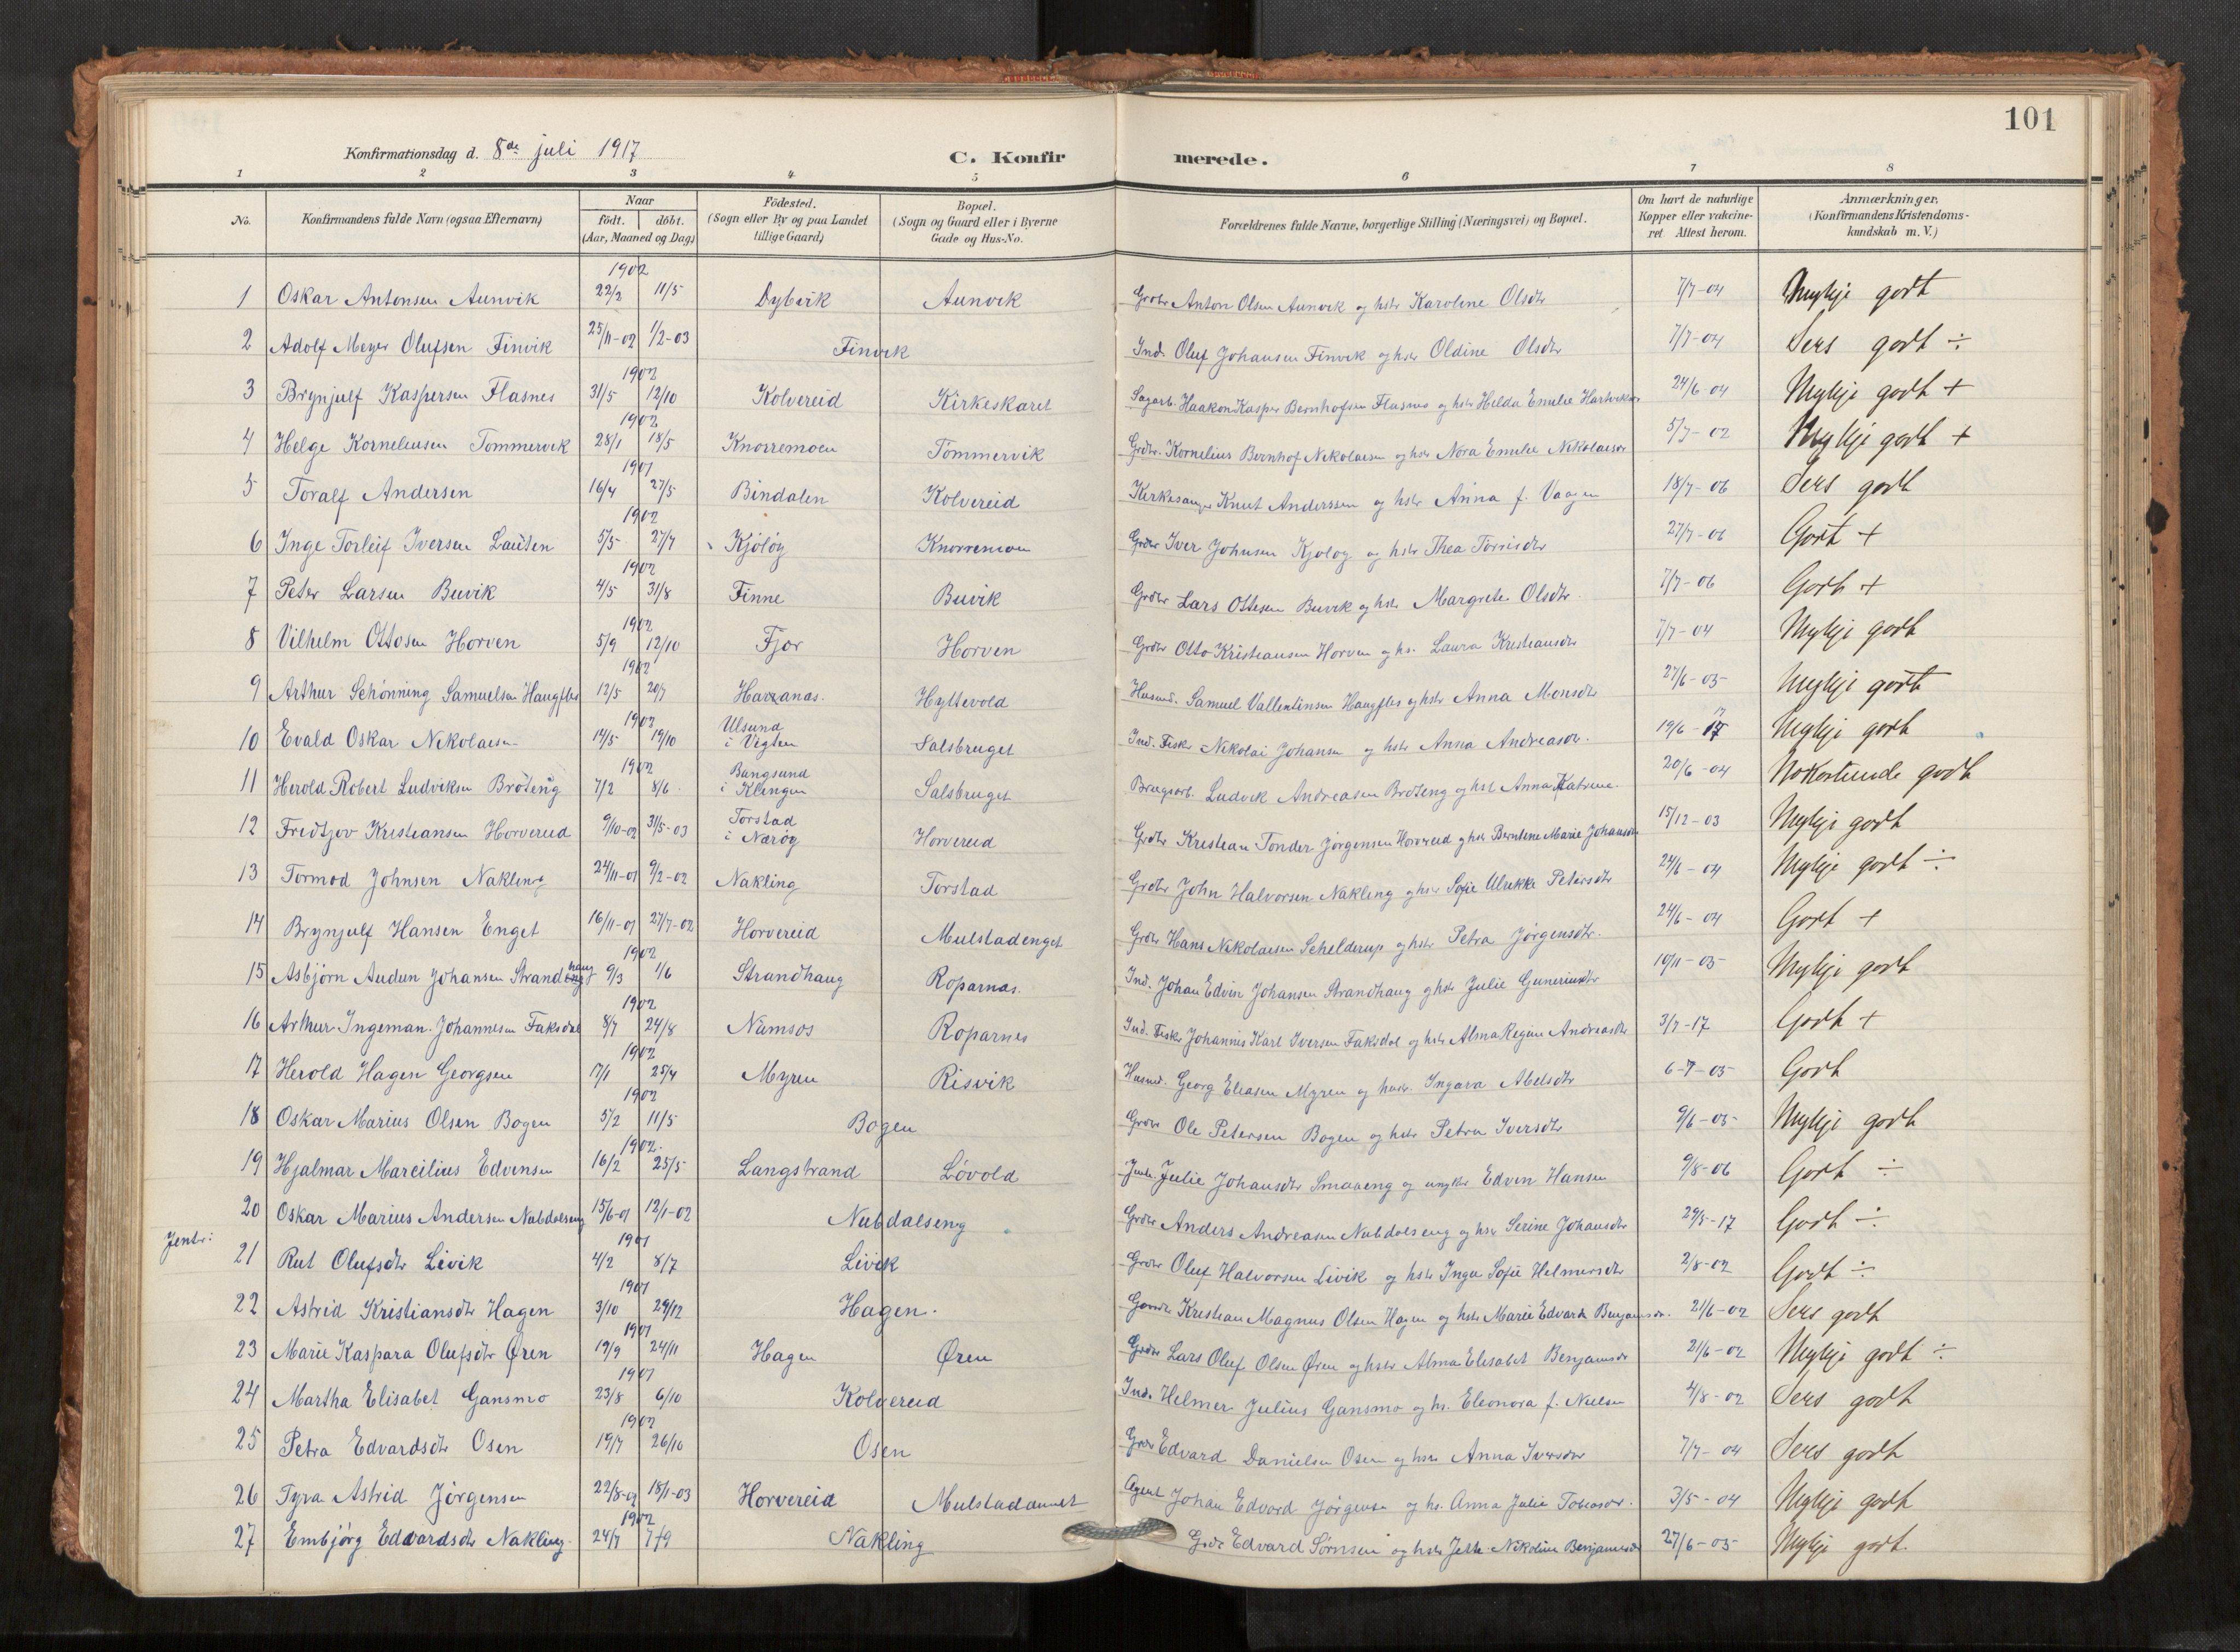 101
Konfirmationsdag d. 8de juli 1917
C. Konfirmerede.
1 2 3 4 5 6 7 8
No. Konfirmandens fulde Navn (ogsaa Efternavn) Naar født. døbt. (Aar, Maaned og Dag) Födested. (Sogn eller By og paa Landet tillige Gaard) Bopæl. (Sogn og Gaard eller i Byerne Gade og Hus-No. Forældrenes fulde Navne, borgerlige Stilling (Næringsvei) og Bopæl. Om havt de naturlige Kopper eller vakcineret Attest herom. Anmærkninger. (Konfirmandens Kristendomskundskab m. V.)
1 Oskar Antonsen Aunvik 1902 22/2 11/5 Dybvik Aunvik Grdbr Anton Olsen Aunvik og hstr Karoline Olsdtr 7/7-04 Mykje godt
2 Adolf Meyer Olufsen Finvik 25/11-02 1/2-03 Finvik Ind. Oluf Johansen Finvik og hstr Oldine Olsdtr 7/7-04 Sers godt ÷
3 Brynjulf Kaspersen Flasnes 1902 31/5 12/10 Kolvereid Kirkeskaret Sagarb. Haakon Kasper Bernhofsen Flasnes og hstr Helda Emelie Hartviksdr 24/6-04 Mykje godt +
4 Helge Korneliusen Tømmervik 1902 28/1 18/5 Knorremoen Tømmervik Grdbr. Kornelius Bernhof Nikolaisen og hstr Nora Emelie Nikolaisdr 5/7-02 Mykje godt +
5 Toralf Andersen 1901 16/4 27/5 Bindalen Kolvereid Kirkesanger Knut Anderssen og hstr Anna f. Vaagen 18/7-06 Sers godt
6 Inge Torleif Iversen Lausen 1902 5/5 27/7 Kjøløy Knorremoen Grdbr Iver Johnsen Kjøløy og hstr Thea Torrisdtr 27/7-06 Godt +
7 Peter Larsen Buvik 1902 4/5 31/8 Finne Buvik Grdbr Lars Ottesen Buvik og hstr Margrete Olsdtr 7/7-06 Godt +
8 Vilhelm Ottosen Horven 1902 5/9 12/10 Fjær Horven Grdbr Otto Kristiansen Horven og hs. Laura Kristiansdtr 7/7-04 Mykje godt
9 Arthur Schönning Samuelsen Haugfles 1902 12/5 20/7 Harranas. Hyltevold Husmd. Samuel Vallentinsen Haugfles og hstr Anna Monsdtr 27/6-05 Mykje godt
10 Evald Oskar Nikolaisen 1902 14/5 19/10 Ulsund i Vigten Salsbruget Ind. Fisker Nikolai Johansen og hstr Anna Andreasdr. 19/6-17 Mykje godt
11 Herold Robert Ludviksen Brøteng 1902 7/2 8/6 Bangsund i Klingen Salsbruget Brugsarb. Ludvik Andreasen Brøteng og hst Anna Katrine 20/6-04 Nokorlunde godt
12 Fredtjov Kristiansen Horvereid 9/10-02 31/5-03 Torstad i Nærøy Horvereid Grdbr Kristian Tonder Jørgensen Horvereid og hstr Berntine Marie Johansdr 15/12-03 Mykje godt
13 Tormod Johnsen Nakling 24/11-01 9/2-02 Nakling Torstad Grdbr John Halvorsen Nakling og hstr Sofie Ulrikke Petersdtr 24/6-04 Mykje godt ÷
14 Brynjulf Hansen Enget 16/11-01 27/7-02 Horvereid Mulstadenget Grdbr Hans Nikolaisen Schelderup og hstr Petra Jørgensdtr. 24/6-04 Godt +
15 Asbjørn Audun Johansen Strandhaug 1902 9/3 1/6 Strandhaug Roparnas. Ind. Johan Edvin Johansen Strandhaug og hstr Julie Guneriusdtr 10/11-05 Mykje godt
16 Arthur Ingeman Johannesen Faksdal 1902 8/7 24/8 Namsos Roparnes Ind. Fisker Johannes Karl Iversen Faksdal og hstr Alma Regine Andreasdtr 3/7-17 Godt +
17 Herold Hagen Georgsen 1902 17/1 25/4 Myren Risvik Husmd. Georg Eliasen Myren og hustr. Ingara Abelsdtr 6-7-05 Godt
18 Oskar Marius Olsen Bogen 1902 5/2 11/5 Bogen Grdbr Ole Petersen Bogen og hstr Petra Iversdtr 9/6-05 Mykje godt
19 Hjalmar Marcilius Edvinsen 1902. 16/2 25/5 Langstrand Løvold Julie Johansdtr Smaaeng og ungkr Edvin Hansen 9/8-06 Godt ÷
20 Oskar Marius Andersen Nubdalseng 15/6-01 12/1-02 Nubdalseng Grdbr Anders Andreasen Nubdalseng og hstr Serine Johansdtr 29/5-17 Godt ÷
Jentr:
21 Rut Olufsdtr Livik 1901 4/2 8/7 Livik Grdbr Oluf Halvorsen Livik og hstr Inga Sofie Helmersdtr 2/8-02 Godt ÷
22 Astrid Kristiansdtr Hagen 1901 3/10 29/12 Hagen. Kristian Magnus Olsen Hagen og hstr Marie Edvarda Benjaminsdr. 21/6-02 Sers godt
23 Marie Kaspara Olufsdtr Øren 1901 19/9 24/11 Hagen Øren Grdbr Lars Oluf Olsen Øren og hstr Alma Elisabet Benjamsdr 21/6-02 Mykje godt ÷
24 Martha Elisabet Gansmo 1901 23/8 6/10 Kolvereid Ind. Helmer Julius Gansmo og hs. Eleonora f. Nielsen 4/8-02 Sers godt
25 Petra Edvardsdtr Osen 1902 19/7 26/10 Osen Grdbr Edvard Danielsen Osen og hstr Anna Iversdtr 7/7-04 Sers godt
26 Tyra Astrid Jørgensen 22/8-02 18/1-03 Horvereid Mulstadaunet Agent Johan Edvard Jørgensen og hs. Anna Julie Tobiasdr. 3/5-04 Mykje godt
27 Embjørg Edvardsdtr Nakling 1902 24/7 7/9 Nakling Grdbr Edvard Sørnsen og hstr Jette Nikoline Benjaminsdr 27/6-05 Mykje godt.